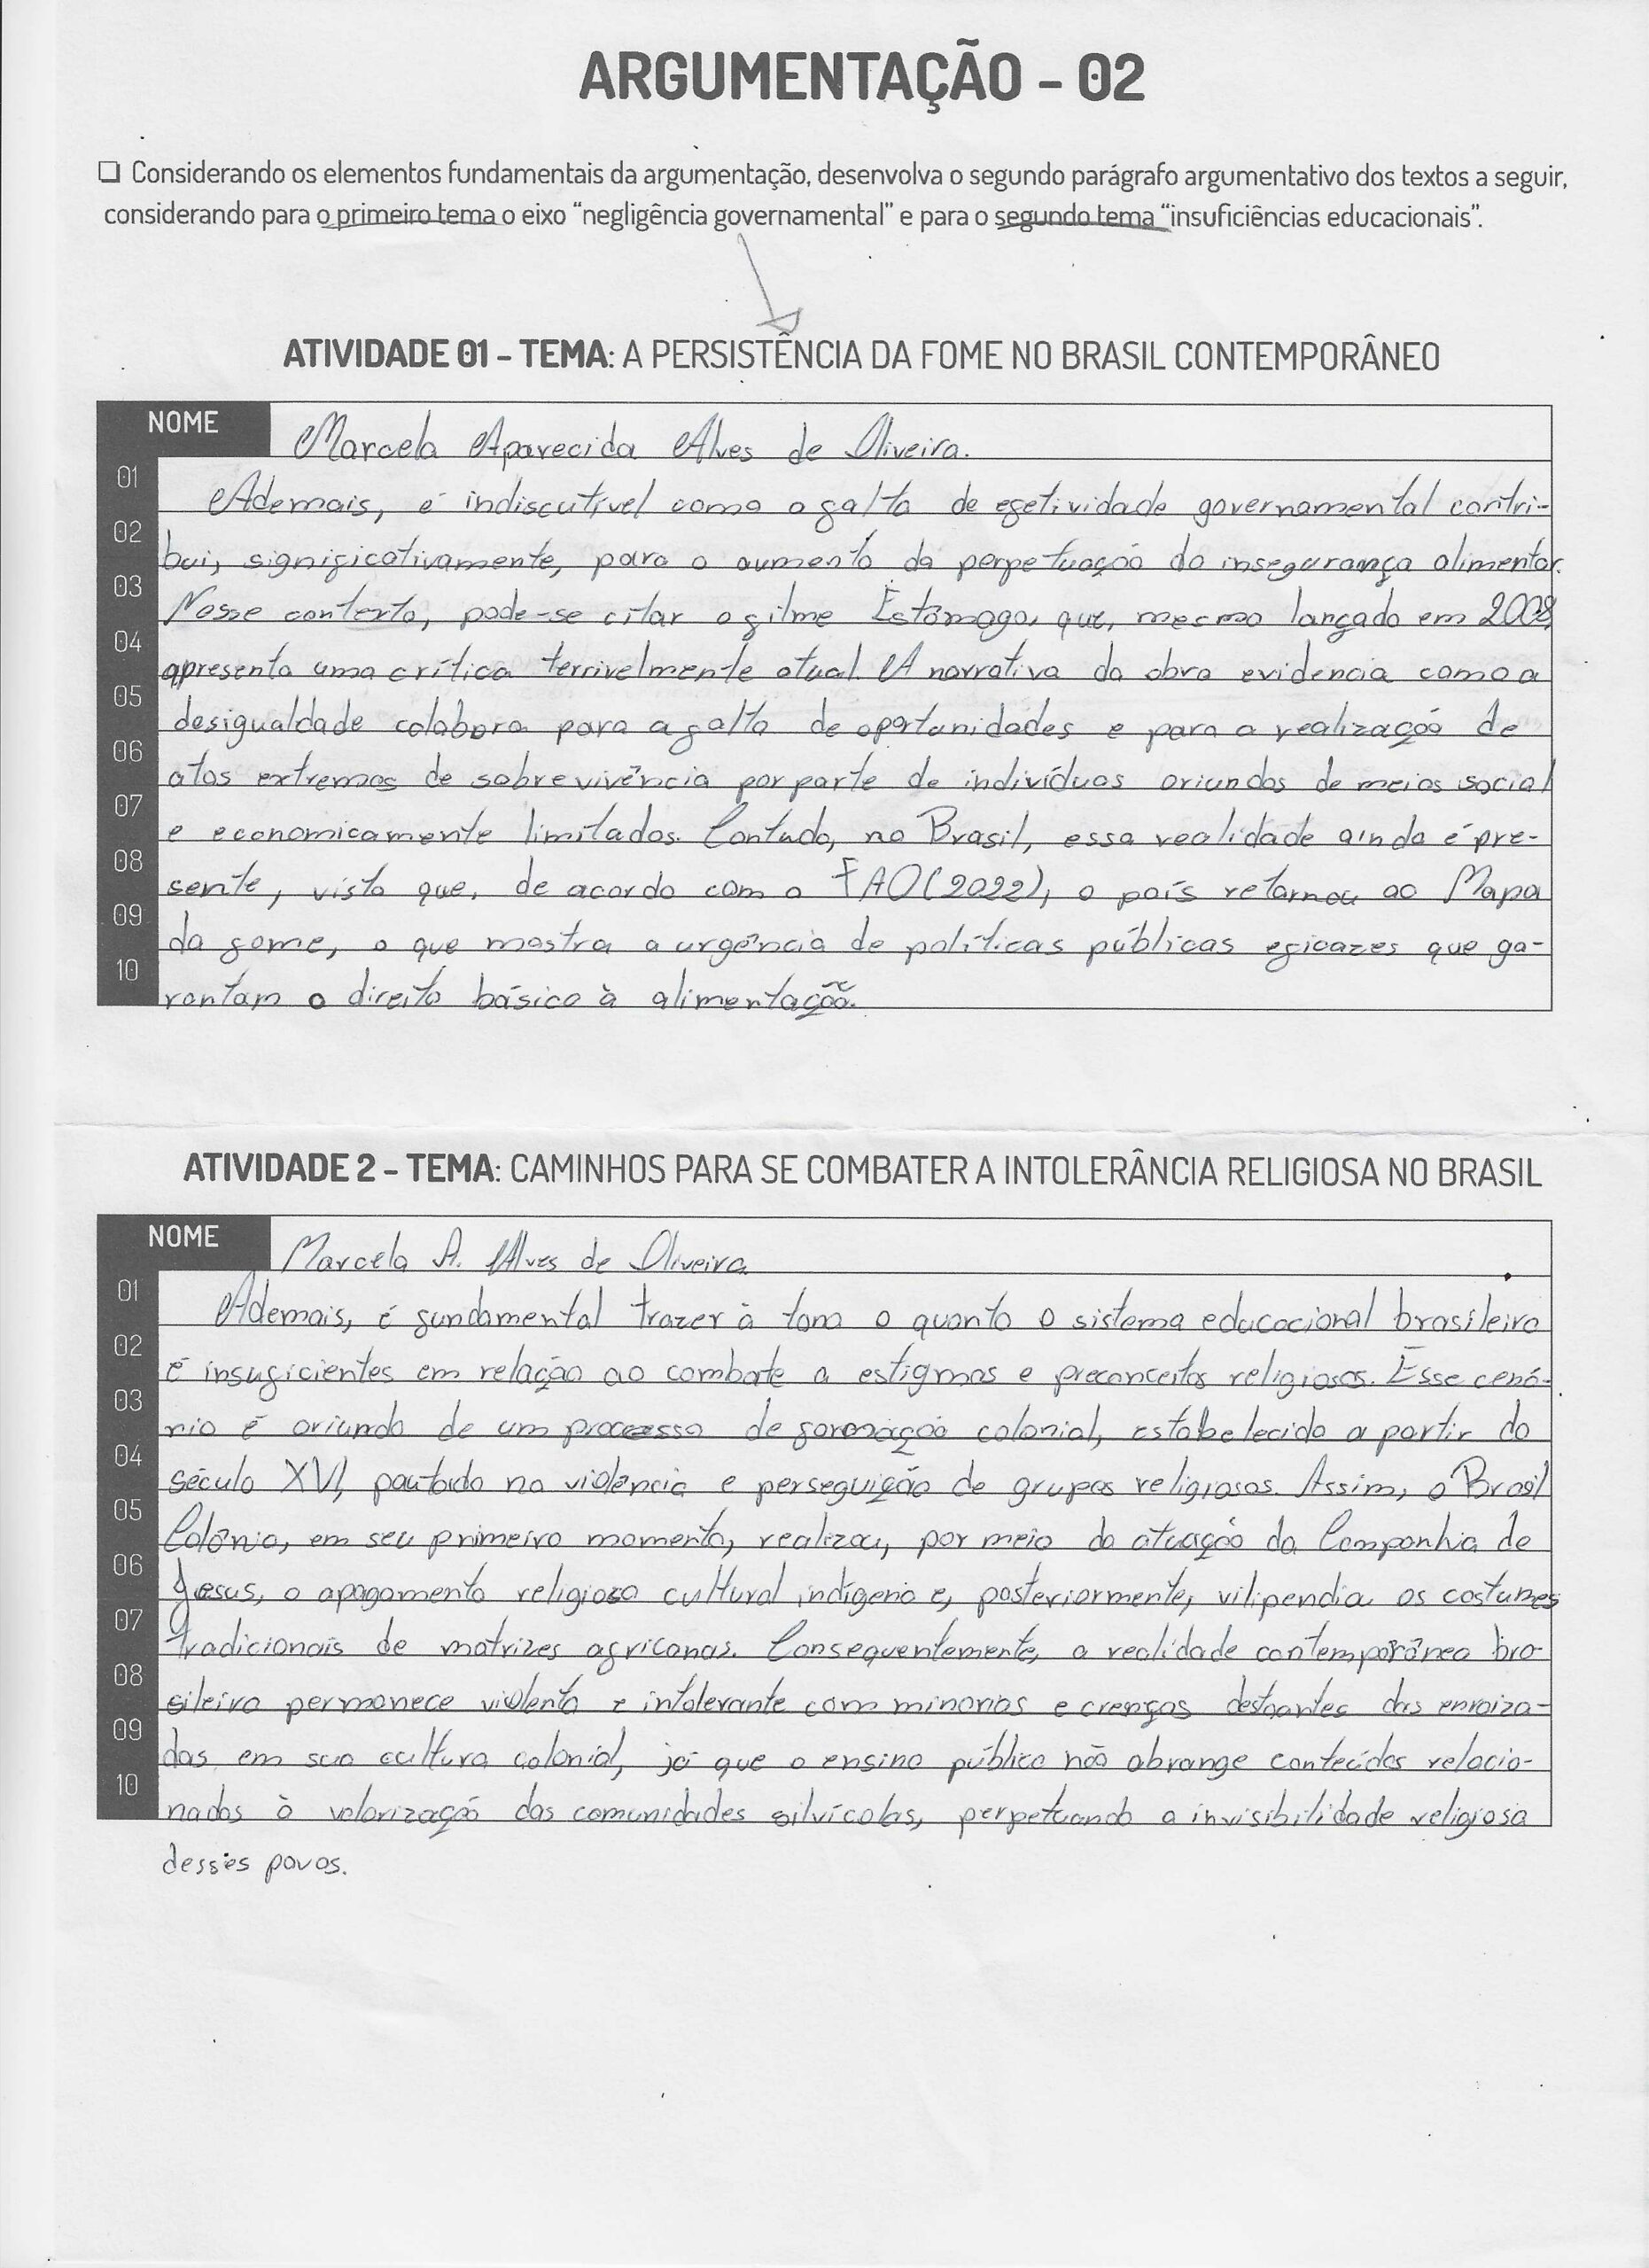 ARGUMENTAÇÃO - 02
❑ Considerando os elementos fundamentais da argumentação, desenvolva o segundo parágrafo argumentativo dos textos a seguir,
considerando para o primeiro tema o eixo “negligência governamental” e para o segundo tema “insuficiências educacionais”.
ATIVIDADE 01 – TEMA: A PERSISTÊNCIA DA FOME NO BRASIL CONTEMPORÂNEO
NOME Marcela Aparecida Alves de Oliveira.
01 Ademais, é indiscutível como a falta de efetividade governamental contri-
02 bui, significativamente, para o aumento da perpetuação da insegurança alimentar.
03 Nesse contexto, pode-se citar o filme Estômago, que, mesmo lançado em 2008,
04 apresenta uma crítica terrivelmente atual. A narrativa da obra evidencia como a
05 desigualdade colabora para a falta de oportunidades e para a realização de
06 atos extremos de sobrevivência por parte de indivíduos oriundos de meios social
07 e economicamente limitados. Contudo, no Brasil, essa realidade ainda é pre-
08 sente, visto que, de acordo com a FAO (2022), o país retornou ao Mapa
09 da fome, o que mostra a urgência de políticas públicas eficazes que ga-
10 rantam o direito básico à alimentação.
ATIVIDADE 2 – TEMA: CAMINHOS PARA SE COMBATER A INTOLERÂNCIA RELIGIOSA NO BRASIL
NOME Marcela A. Alves de Oliveira
01 Ademais, é fundamental trazer à tona o quanto o sistema educacional brasileiro
02 é insuficientes em relação ao combate a estigmas e preconceitos religiosos. Esse cená-
03 rio é oriundo de um processo de formação colonial, estabelecido a partir do
04 século XVI, pautado na violência e perseguição de grupos religiosos. Assim, o Brasil
05 Colônia, em seu primeiro momento, realizou, por meio da atuação da Companhia de
06 Jesus, o apagamento religioso cultural indígena e, posteriormente, vilipendia os costumes
07 tradicionais de matrizes africanas. Consequentemente, a realidade contemporânea bra-
08 sileira permanece violenta e intolerante com minorias e crenças destoantes das enraiza-
09 das em sua cultura colonial, já que o ensino público não abrange conteúdos relacio-
10 nados à valorização das comunidades silvícolas, perpetuando a invisibilidade religiosa
desses povos.